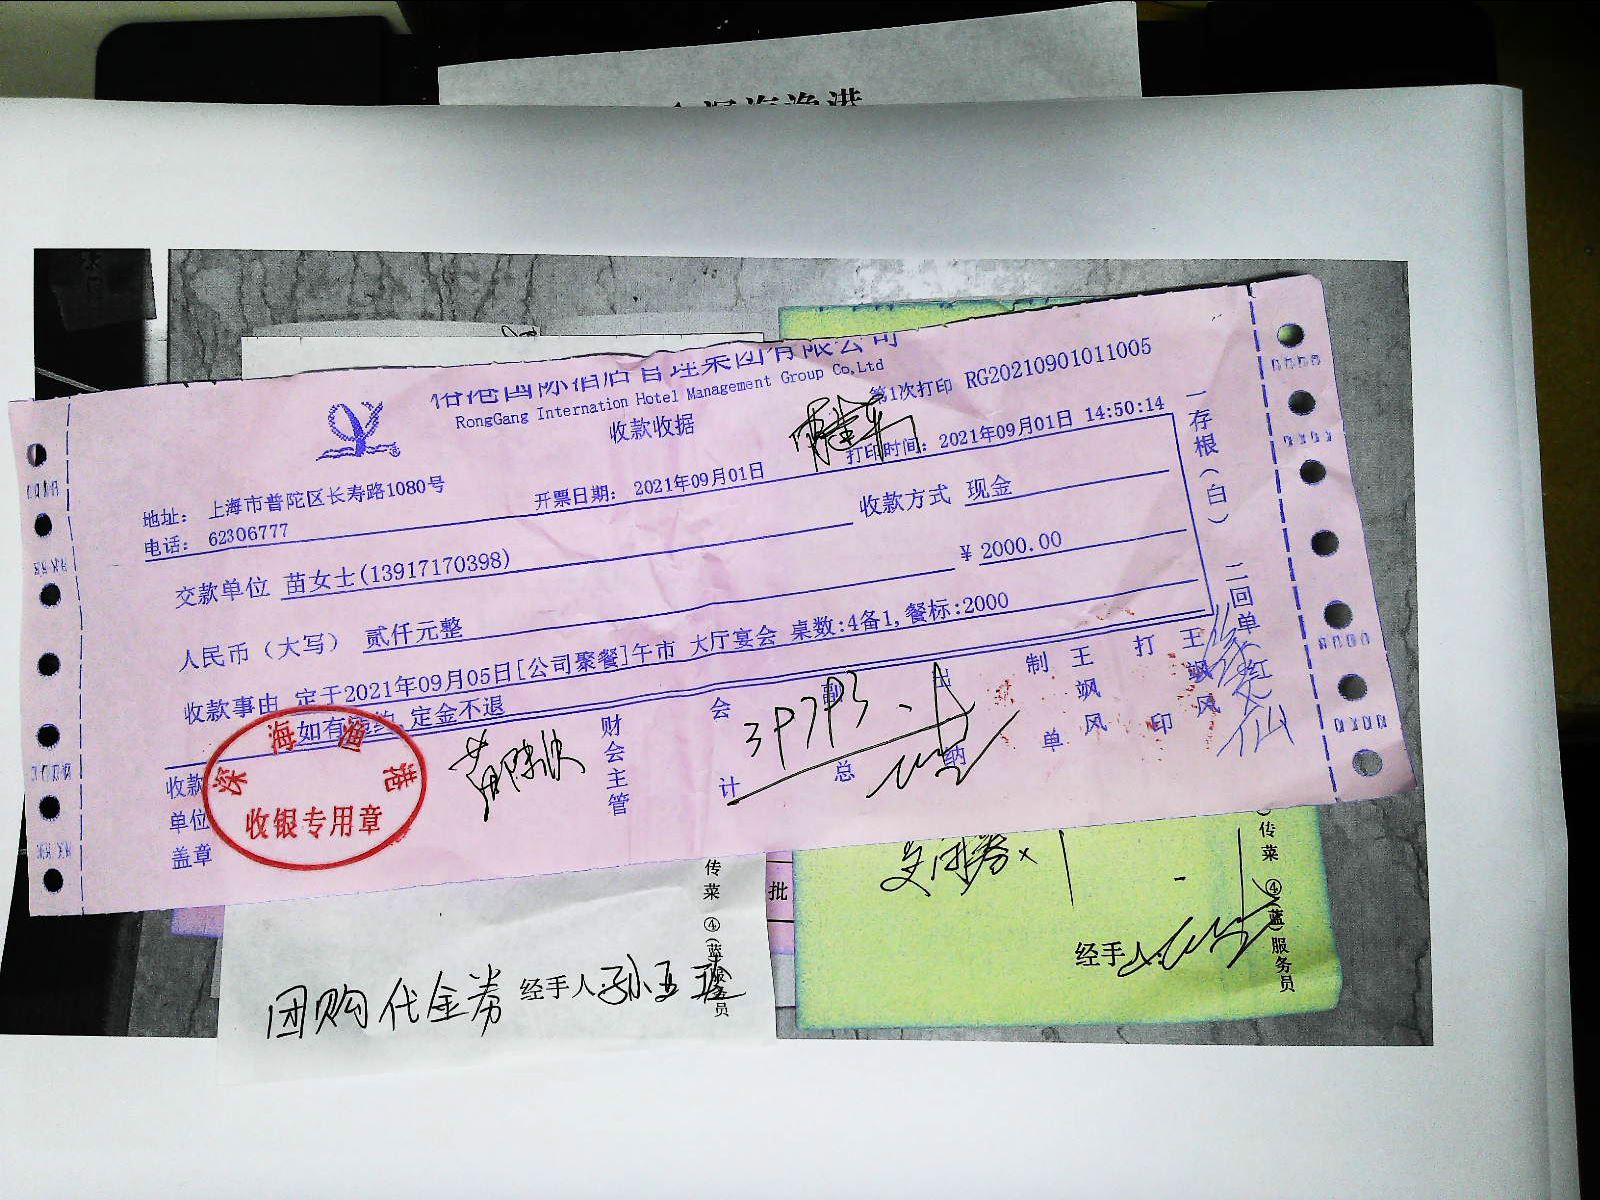 国际酒店管理集团有限公司
RongGang Internation Hotel Management Group Co,Ltd
收款收据
第1次打印 RG20210901011005
地址： 上海市普陀区长寿路1080号
开票日期： 2021年09月01日
打印时间： 2021年09月01日 14:50:14
电话： 62306777
收款方式 现金
交款单位 苗女士(13917170398)
¥ 2000.00
人民币（大写） 贰仟元整
收款事由 定于2021年09月05日[公司聚餐]午市 大厅宴会 桌数:4备1,餐标:2000
如有违约 定金不退
收款单位盖章
深海渔港
收银专用章
财会主管
会计
出纳
制单
王飒风
打印
王飒风
一存根(白) 二回单 红
传菜 ④(蓝)服务员
批
经手人:
团购代金券 经手人:
传菜 ④(蓝)服务员